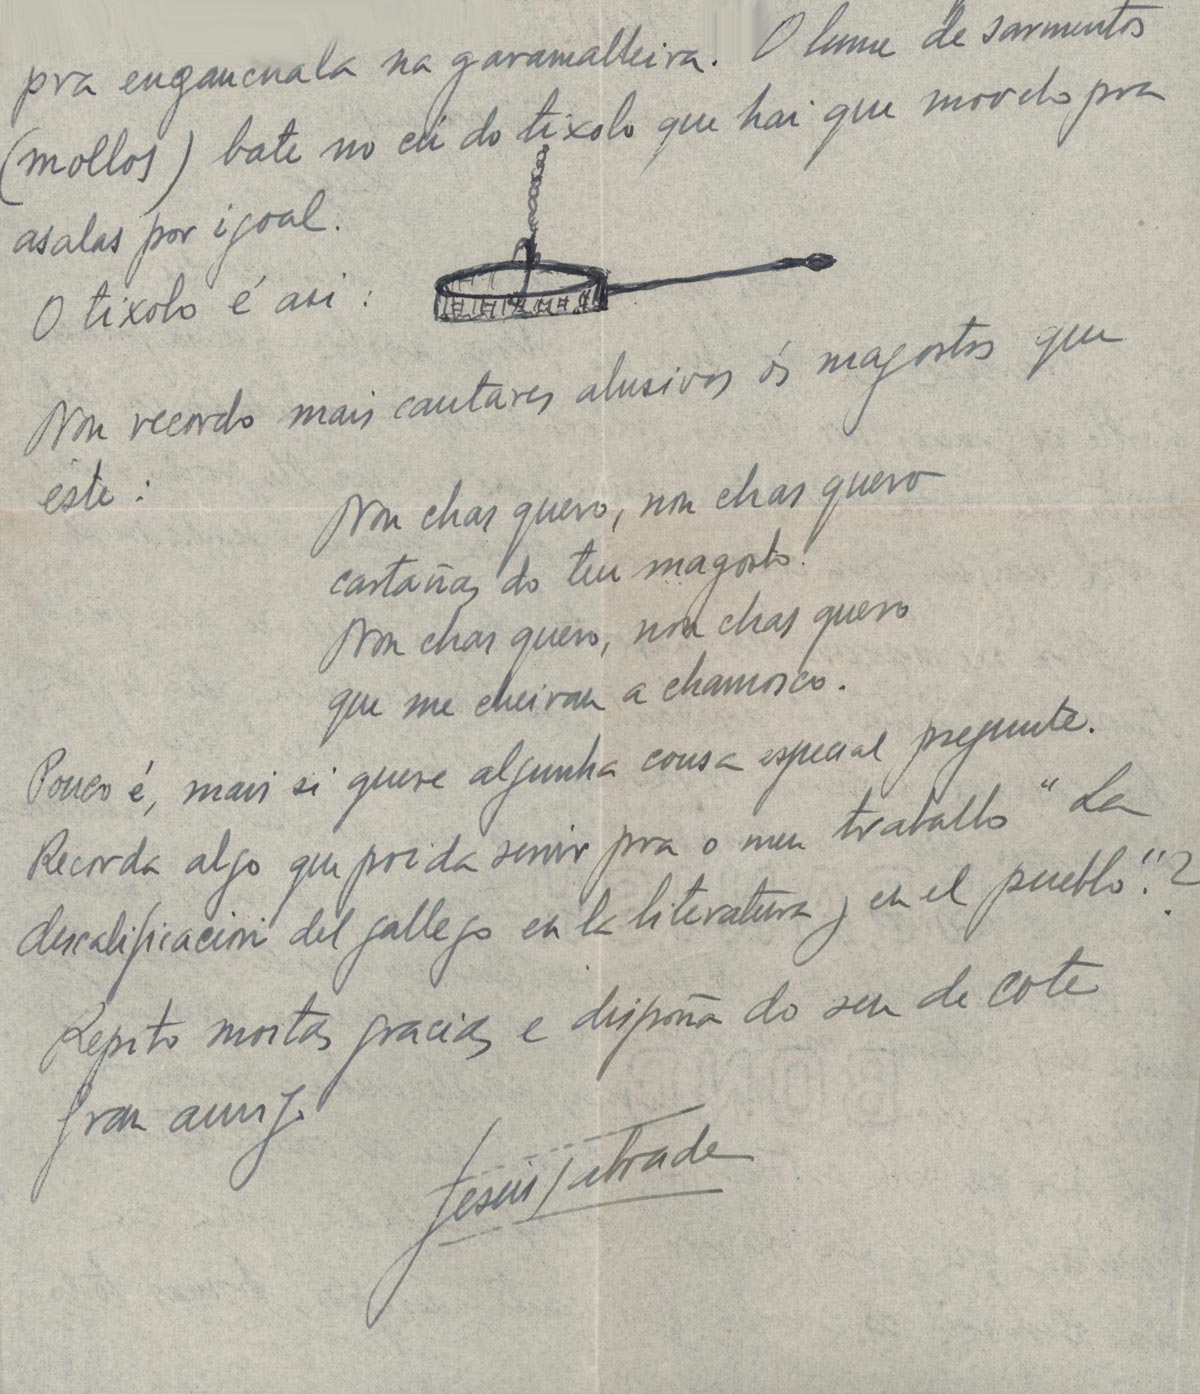 pra enganchala na garamalleira. O lume de sarmentos
(mollos) bate no cú do tixolo que hai que movelo pra
asalas por igoal.
O tixolo é asi:
Non recordo mais cantares alusivos ós magostos que
éste:
Non chas quero, non chas quero
castañas do teu magosto.
Non chas quero, non chas quero
que me cheiran a chamosco.
Pouco é, mais si quere algunha cousa especial pregunte.
Recorda algo que poida servir pra o meu traballo "La
descalificación del gallego en la literatura y en el pueblo".?
Repito moitas gracias e dispoña do seu de cote
gran amigo
Jesús Taboada